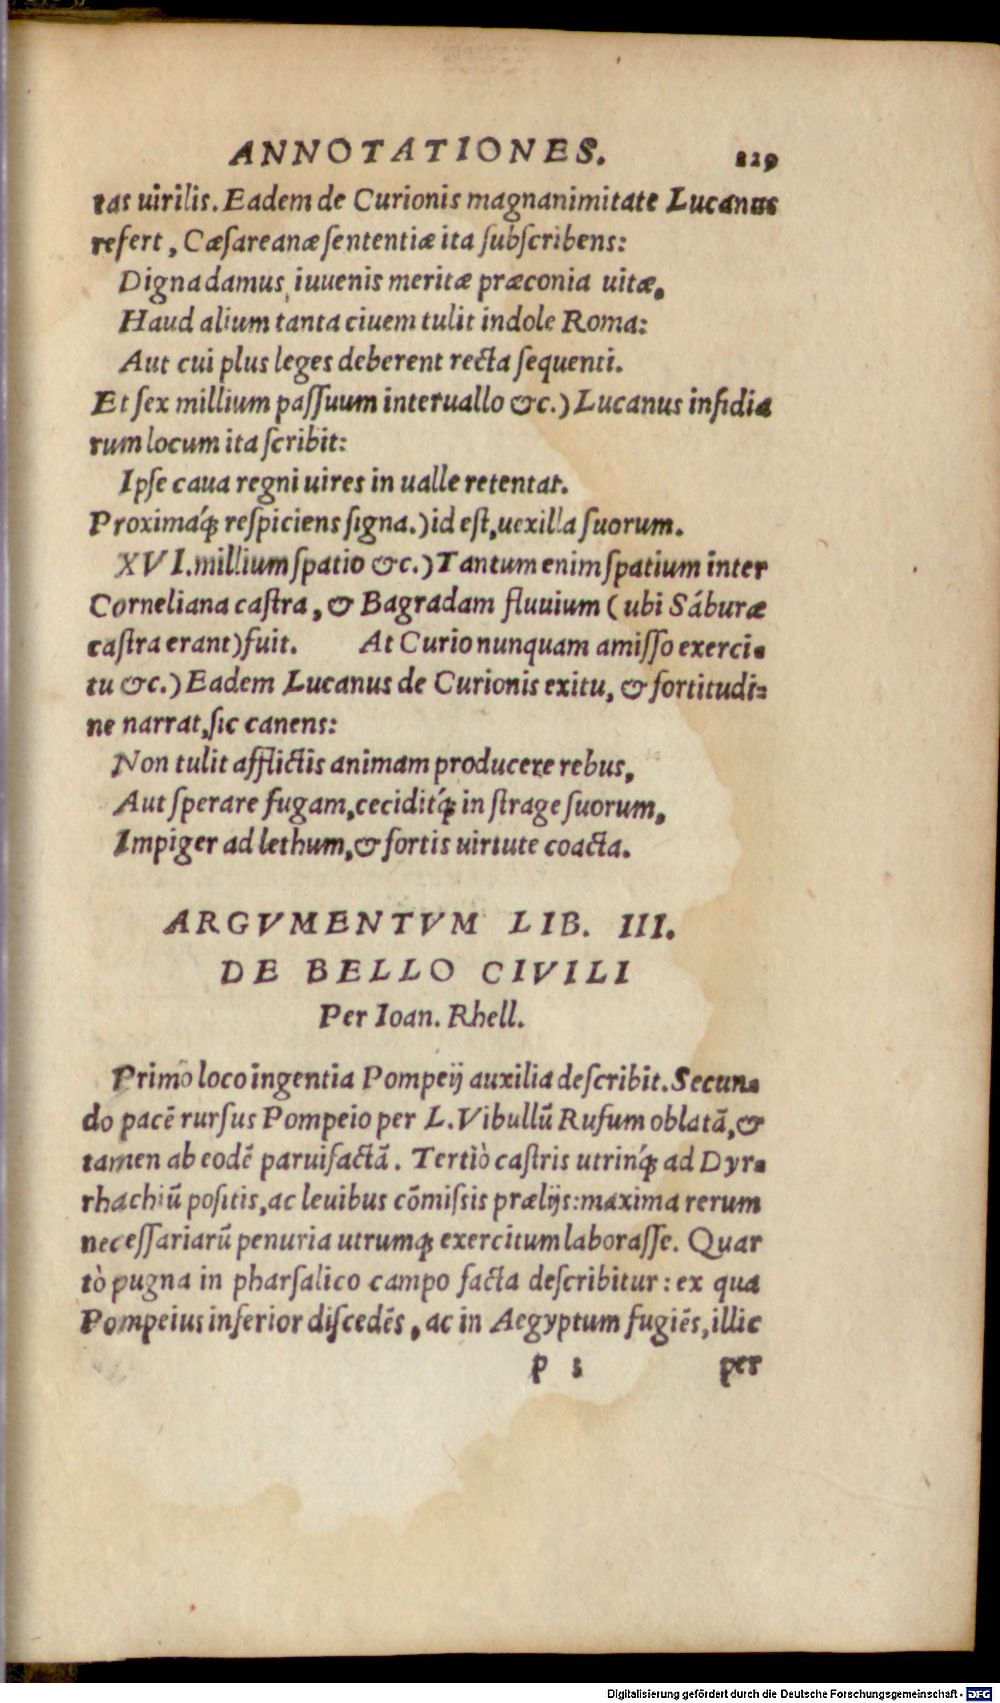 ANNOTATIONES. 229
tas uirilis. Eadem de Curionis magnanimitate Lucanus
refert, Cæſareanæ ſententiæ ita ſubſcribens:
Digna damus, iuuenis meritæ præconia uitæ.
Haud alium tanta ciuem tulit indole Roma:
Aut cui plus leges deberent recta ſequenti.
Et ſex millium paſſuum interuallo &c.) Lucanus inſidia
rum locum ita ſcribit:
Ipſe caua regni uires in ualle retentat.
Proximáꝗ; reſpiciens ſigna.) id eſt, uexilla ſuorum.
XVI. millium ſpatio &c.) Tantum enim ſpatium inter
Corneliana caſtra, & Bagradam fluuium (ubi Sáburæ
caſtra erant) fuit. At Curio nunquam amiſſo exerci-
tu &c.) Eadem Lucanus de Curionis exitu, & fortitudi=
ne narrat, ſic canens:
Non tulit afflictis animam producere rebus,
Aut ſperare fugam, ceciditꝗ́; in ſtrage ſuorum,
Impiger ad lethum, & fortis uirtute coacta.
ARGVMENTVM LIB. III.
DE BELLO CIVILI
Per Ioan. Rhell.
Primò loco ingentia Pompeij auxilia deſcribit. Secun-
do pacē rurſus Pompeio per L. Vibullū Rufum oblatā, &
tamen ab eodē paruifactā. Tertiò caſtris utrinꝗ́; ad Dyr-
rhachiū poſitis, ac leuibus cōmiſsis prælijs: maxima rerum
neceſſariarū penuria utrumꝗ; exercitum laboraſſe. Quar
tò pugna in pharſalico campo facta deſcribitur: ex qua
Pompeius inferior diſcedēs, ac in Aegyptum fugiēs, illic
p 3 per
Digitalisierung gefördert durch die Deutsche Forschungsgemeinschaft - DFG